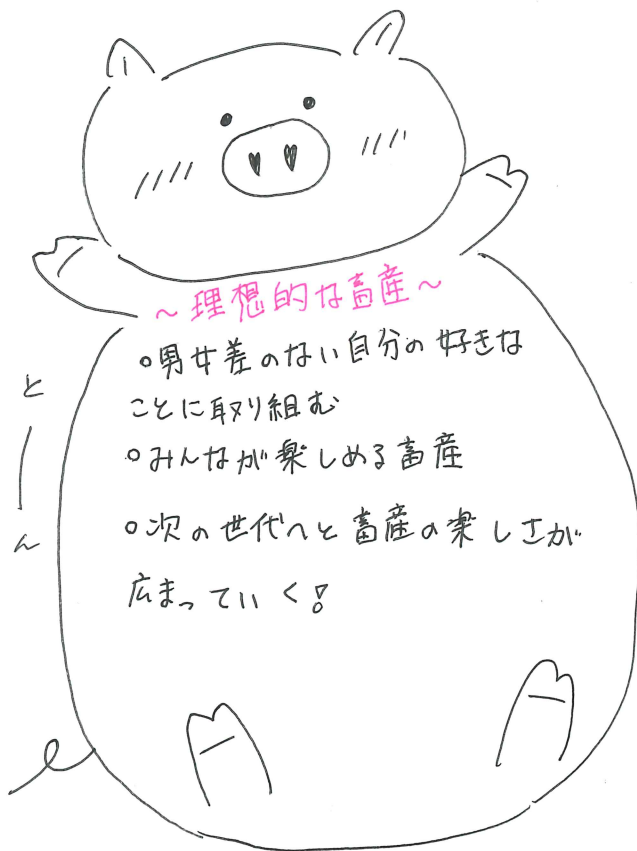 ～理想的な畜産～
○男女差のない自分の好きな
ことに取り組む
○みんなが楽しめる畜産
○次の世代へと畜産の楽しさが
広まっていく!
とーん